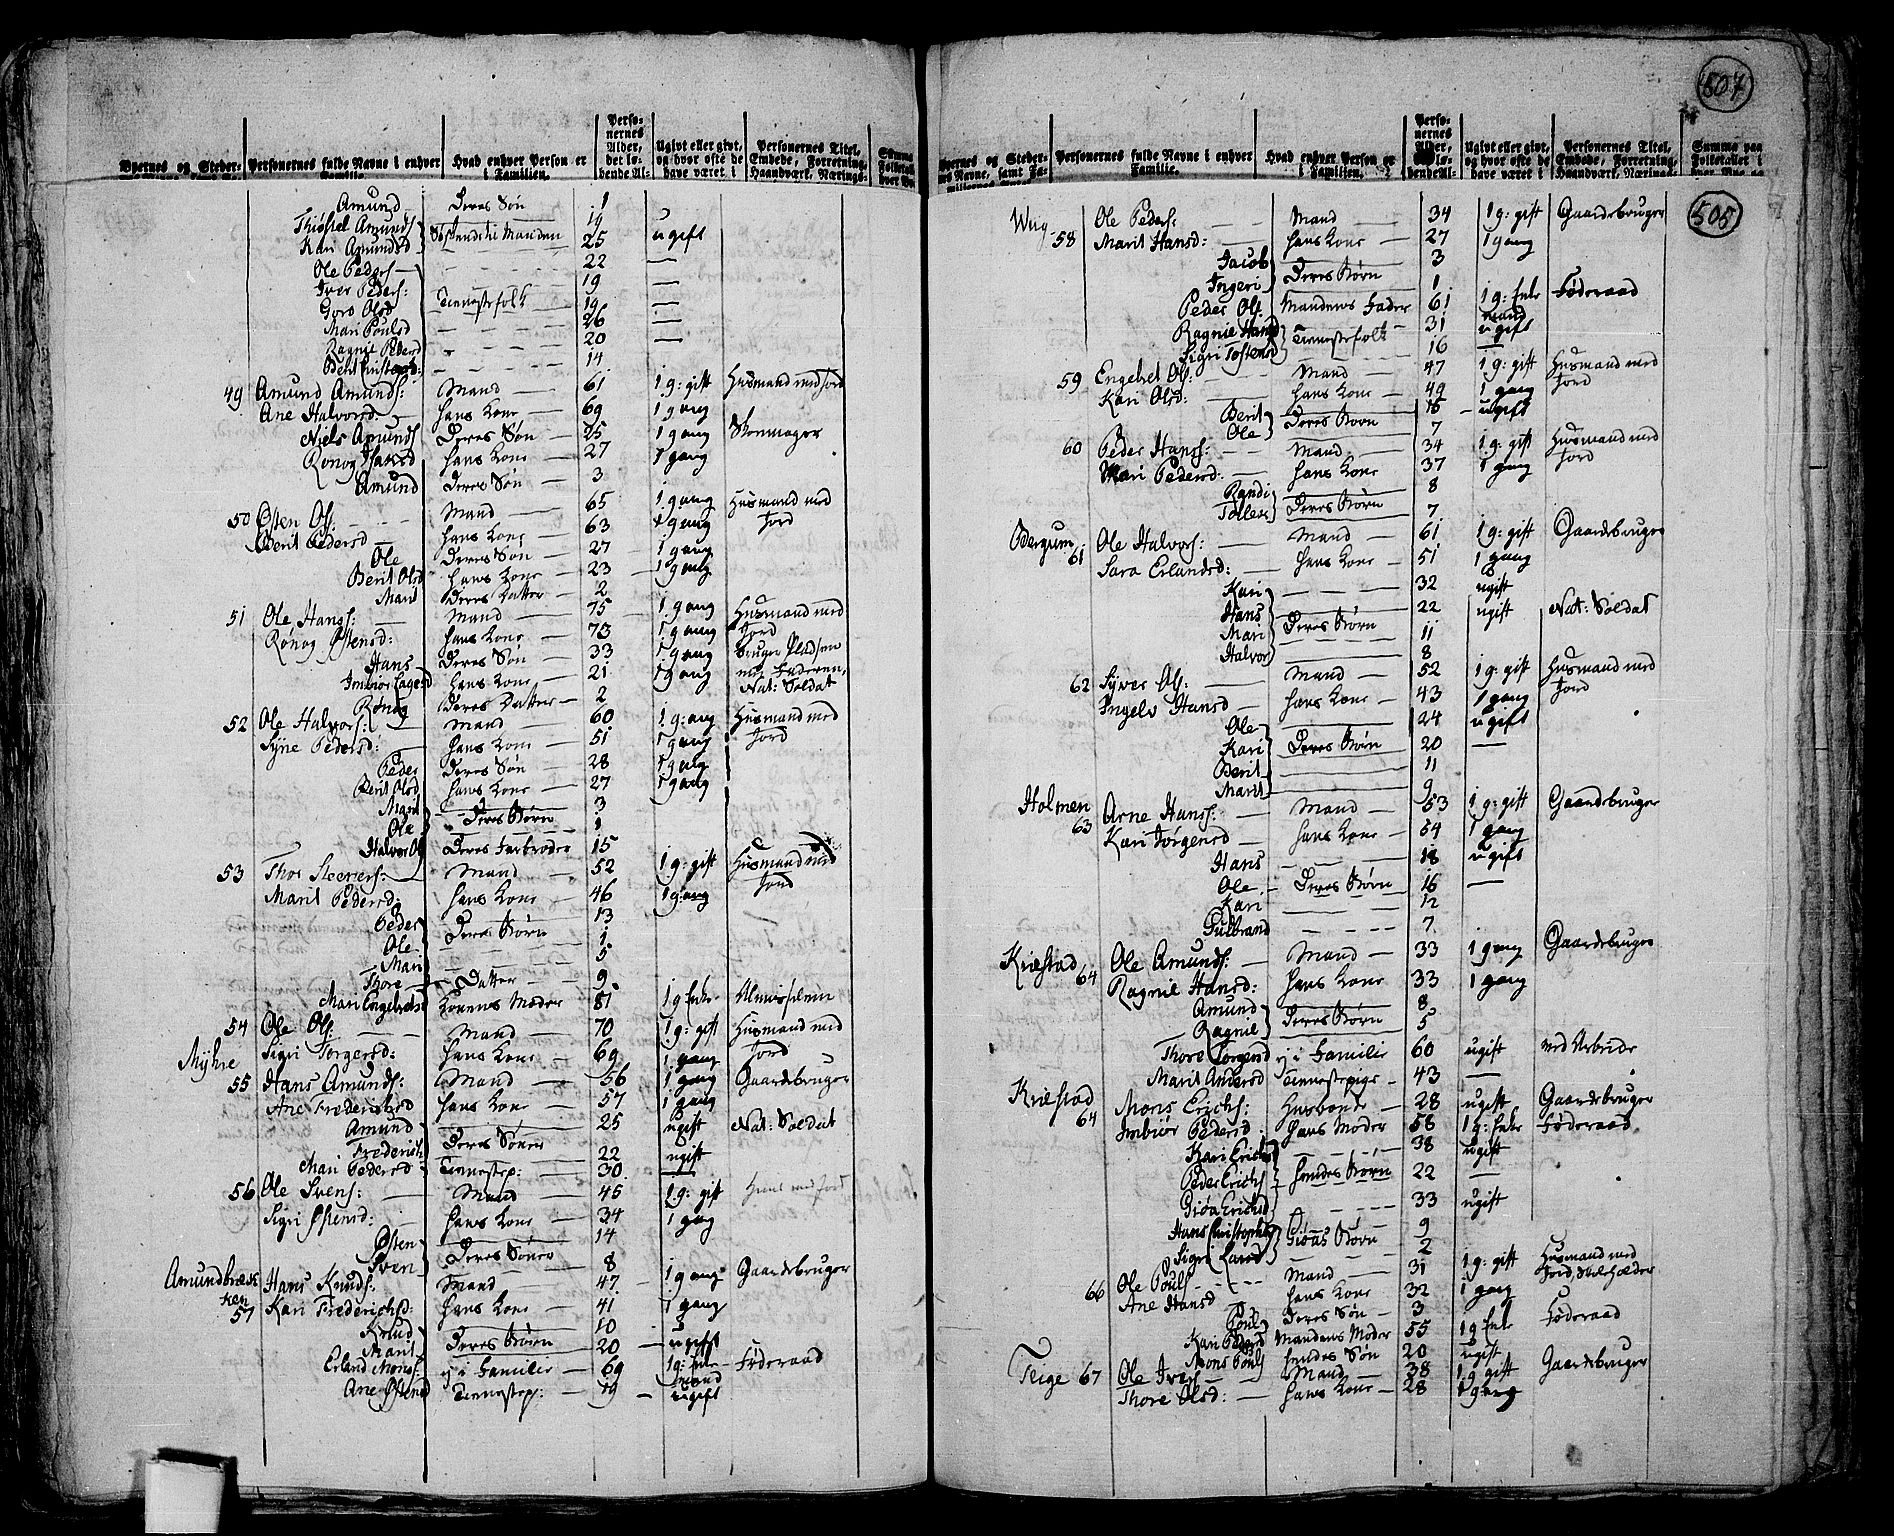 807
505
Byernes og Steder- Personernes fulde Navne i enhver Familie. Hvad enhver Person er i Familien. Personernes Alder, det løbende Al- Ugivt eller givt, og hvor ofte de have været i Personernes Titel, Embede, Forretning, Haandværk, Nærings- Summa
Amund Deres Søn 1
Amunds 19
Kari Amundsd Manden 25 ugift
Ole Peders 22 —
Iver Peders: 19 —
Goro Olsd Tienestefolk 19 —
Mari Poulsd 26 —
Ragnil Pedersd 20 —
14
49 Amund Amunds: Mand 61 1 g: gift Husmand med Jord
Ane Halvorsd hans Kone 69 1 gang
Niels Amunds Deres Søn 25 1 gang Skomager
Ronog hans Kone 27 1 gang
Amund Deres Søn 3
50 Østen Ols: Mand 65 1 gang Husmand med Jord
Berit Pedersd hans Kone 63 1 gang
Ole Deres Søn 27 1 gang
Berit Olsd hans Kone 23 1 gang
Marit Deres Datter 2
51 Ole Hanss: Mand 75 1 gang Husmand med Jord
Rønog Østensd: hans Kone 73 1 gang
Hans Deres Søn 33 1 gang bruger Pladsen med Faderen, Nat: Soldat
Imbiør hans Kone 21 1 gang
Rønog Deres Datter 2
52 Ole Halvors: Mand 60 1 gang Husmand med Jord
Syne Pedersd: hans Kone 51 1 gang
Peder Deres Søn 28 1 gang
Berit Olsd hans Kone 27 1 gang
Marit 3
Ole Deres Børn 1
Halvor Ols Deres Farbroder 15
53 Thor Mand 52 1 g: gift Husmand med Jord
Marit Pedersd: hans Kone 46 1 gang
Peder 13
Ole Deres Børn 1
Mari 5
Thore Datter 9
Mari Engebretsd Konens Moder 81 1 g Enke Almisselem
54 Ole Ols: Mand 70 1 g: gift Husmand med Jord
Sigri Torgersd: hans Kone 69 1 gang
Myhre
55 Hans Amunds: Mand 56 1 gang Gaardebruger
Ane Frederichsd hans Kone 57 1 gang
Amund 25 ugift Nat: Soldat
Frederich Deres Sønner 22 ugift
Mari Pedersd Tienestep: 30 —
56 Ole Svens: Mand 45 1 g: gift Huus med Jord
Sigri Østensd: hans Kone 34 1 gang
Østen 14
Sven Deres Sønner 8
Amundbræk
ken
57 Hans Knuds: Mand 47 1 gang Gaardebruger
Kari Frederichsd: hans Kone 41 1 gang
Knud 10
Marit Deres Børn 20 ugift
Erland Mons: ej i Familie 69 1 g: Enkemand Føderaad
Ane Østensd Tienestep: 19 ugift
Byernes og Stedernes Navne, samt Familiernes Personernes fulde Navne i enhver Familie. Hvad enhver Person er i Familien. Personernes Alder, det løbende Al- Ugivt eller givt, og hvor ofte de have været i Personernes Titel, Embede, Forretning, Haandværk, Nærings- Summa paa Folketallet i hver Bye og
Wiig
58 Ole Peders: Mand 34 1 g: gift Gaardebruger
Marit Hansd: hans Kone 27 1 gang
Jacob 3
Ingeri Deres Børn 1
Peder Ols: Mandens Fader 61 1 g: Enkemand Føderaad
Ragnil Hansd Tienestefolk 31 ugift
Sigri Tostensd 16 —
59 Engebret Ols: Mand 47 1 g: gift Husmand med Jord
Kari Olsd: hans Kone 49 1 gang
Berit Deres Børn 18 ugift
Ole 7
60 Peder Hans: Mand 34 1 g: gift Husmand med Jord
Mari Pedersd: hans Kone 37 1 gang
Randi 8
Deres Børn 7
Bergum
61 Ole Halvors: Mand 61 1 g: gift Gaardebruger
Sara Erlandsd: hans Kone 51 1 gang
Kari 32 ugift
Hans 22 ugift Nat: Soldat
Mari Deres Børn 11
Halvor 8
62 Syver Ols: Mand 52 1 g: gift Husmand med Jord
Ingebr Hansd hans Kone 43 1 gang
Ole 24 ugift
Kari Deres Børn 20 —
Berit 11
Marit 9
Holmen
63 Arne Hanss: Mand 53 1 g: gift Gaardebruger
Kari Jørgensd hans Kone 54 1 gang
Hans 18 ugift
Ole Deres Børn 16 —
Kari 12
Gulbrand 7
Kriestad
64 Ole Amunds: Mand 33 1 gang Gaardebruger
Ragnil Hansd: hans Kone 33 1 gang
Amund 8
Ragnil Deres Børn 5
Thore Torgersd ej i Familie 60 ugift ved Arbeide
Marit Andersd Tienestepige 43 —
Kriestad
64 Mons Erichs: Husbonde 28 ugift Gaardebruger
Imbiør Pedersd: hans Moder 58 1 g: Enke Føderaad
Kari Erichsd 38 ugift
Peder Erichs hendes Børn 22 —
Giøa Erichsd 33 ugift
Hans Christophers Giøas Børn 9
Sigri 2
66 Ole Pouls Mand 31 1 g: gift Husmand med Jord, Skoleholder
Ane Hansd hans Kone 32 1 gang
Poul Deres Søn 3
Kari Pedersd Mandens Moder 55 1 g Enke Føderaad
Mons Pouls hendes Søn 20 ugift
Teige 67 Ole Ivers Mand 38 1 g gift Gaardebruger
Thore Olsd: hans Kone 28 1 gang